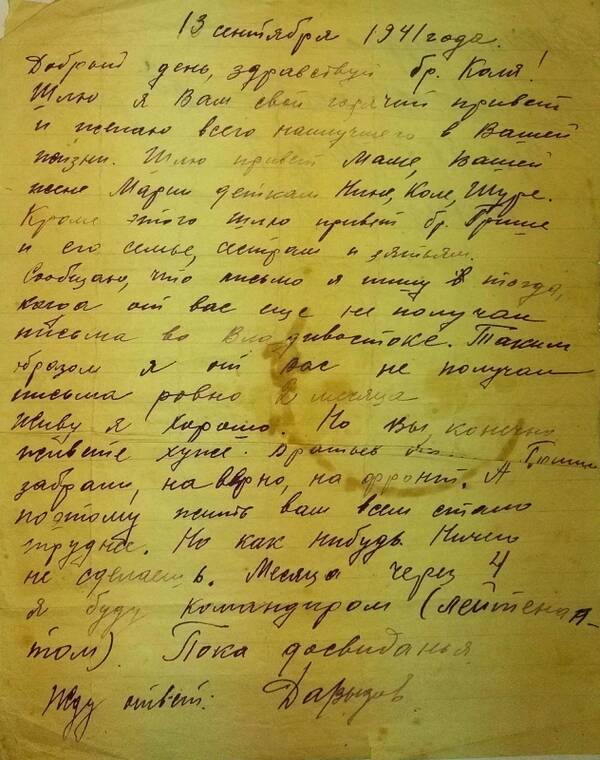 13 сентября 1941 года.
Добрый день, здравствуй бр. Коля!
Шлю я Вам свой горячий привет
и желаю всего наилучшего в Вашей
жизни. Шлю привет Маме, Вашей
жене Марии деткам Нине, Коле, Шуре.
Кроме этого шлю привет бр. Грише
и его семье, сестрам и зятьям.
Сообщаю, что письмо я пишу тогда,
когда от вас еще не получал
письма во Владивостоке. Таким
образом я от вас не получал
письма ровно 2 месяца
Живу я хорошо. Но Вы, конечно
живете хуже. Братьев Гришу
забрали, наверно, на фронт. А
поэтому жить вам всем стало
труднее. Но как нибудь. Ничего
не сделаешь. Месяца через 4
я буду командиром (лейтена-
том). Пока досвиданья.
Жду ответ. Давыдов